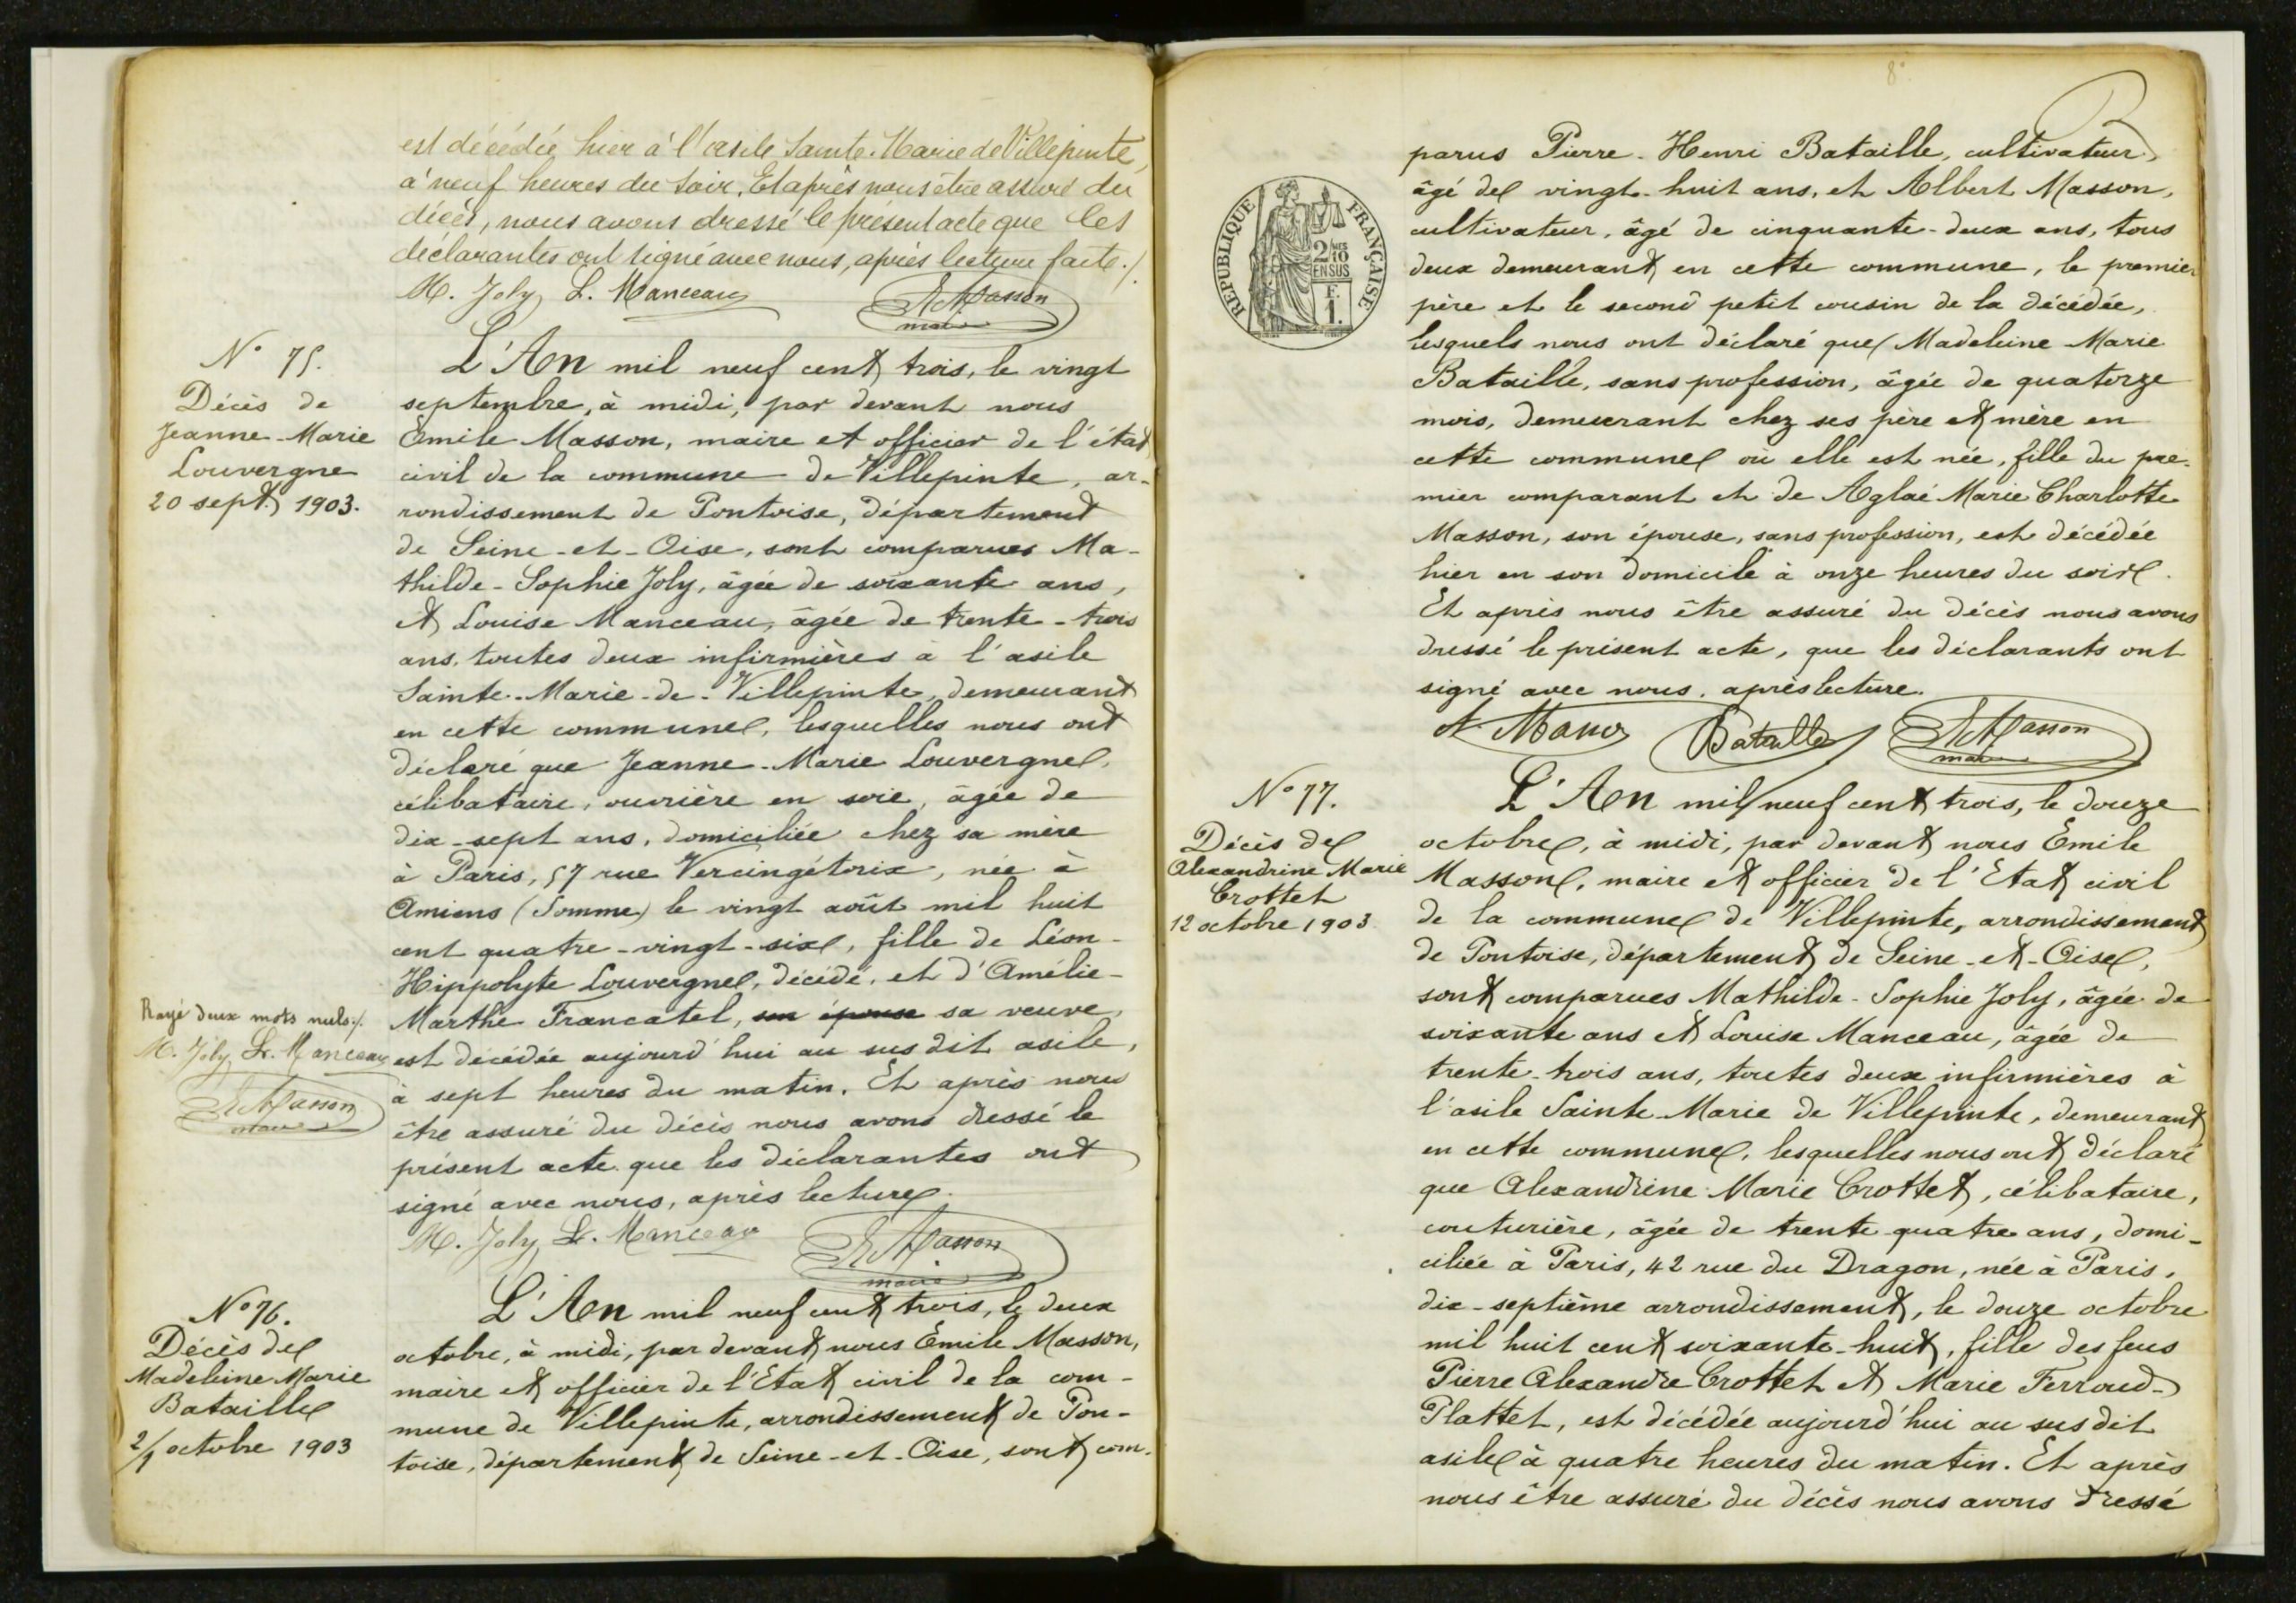 est décédée hier à l'asile Sainte-Marie de Villepinte,
à neuf heures du soir. Et après nous être assuré du
décès, nous avons dressé le présent acte que les
déclarantes ont signé avec nous, après lecture faite./.
M. Joly L. Manceau E Masson
maire
N° 75.
Décès de
Jeanne-Marie
Louvergne
20 sept. 1903.
L'An mil neuf cent trois, le vingt
septembre, à midi, par devant nous
Emile Masson, maire et officier de l'état
civil de la commune de Villepinte, ar-
rondissement de Pontoise, département
de Seine-et-Oise, sont comparues Ma-
thilde-Sophie Joly, âgée de soixante ans,
et Louise Manceau, âgée de trente-trois
ans, toutes deux infirmières à l'asile
Sainte-Marie-de-Villepinte, demeurant
en cette commune, lesquelles nous ont
déclaré que Jeanne-Marie Louvergne,
célibataire, ouvrière en soie, âgée de
dix-sept ans, domiciliée chez sa mère
à Paris, 57 rue Vercingétorix, née à
Amiens (Somme) le vingt août mil huit
cent quatre-vingt-six, fille de Léon-
Hippolyte Louvergne, décédé, et d'Amélie-
Marthe Francatel, son épouse sa veuve,
est décédée aujourd'hui au susdit asile,
à sept heures du matin. Et après nous
être assuré du décès nous avons dressé le
présent acte que les déclarantes ont
signé avec nous, après lecture.
M. Joly L. Manceau E Masson
maire
Rayé deux mots nuls./.
M. Joly L. Manceau
E Masson
maire
N° 76.
Décès de
Madeleine Marie
Bataille
2/ octobre 1903
L'An mil neuf cent trois, le deux
octobre, à midi, par devant nous Emile Masson,
maire et officier de l'Etat civil de la com-
mune de Villepinte, arrondissement de Pon-
toise, département de Seine-et-Oise, sont com-
8
REPUBLIQUE FRANÇAISE
2/10
EN SUS
F.
1.
parus Pierre-Henri Bataille, cultivateur,
âgé de vingt-huit ans, et Albert Masson,
cultivateur, âgé de cinquante-deux ans, tous
deux demeurant en cette commune, le premier
père et le second petit cousin de la décédée,
lesquels nous ont déclaré que Madeleine Marie
Bataille, sans profession, âgée de quatorze
mois, demeurant chez ses père et mère en
cette commune où elle est née, fille du pre-
mier comparant et de Aglaé Marie Charlotte
Masson, son épouse, sans profession, est décédée
hier en son domicile à onze heures du soir.
Et après nous être assuré du décès nous avons
dressé le présent acte, que les déclarants ont
signé avec nous, après lecture.
Bataille E Masson
maire
N° 77.
Décès de
Alexandrine Marie
Crottet
12 octobre 1903
L'An mil neuf cent trois, le douze
octobre, à midi, par devant nous Emile
Masson, maire et officier de l'Etat civil
de la commune de Villepinte, arrondissement
de Pontoise, département de Seine-et-Oise,
sont comparues Mathilde-Sophie Joly, âgée de
soixante ans et Louise Manceau, âgée de
trente-trois ans, toutes deux infirmières à
l'asile Sainte-Marie de Villepinte, demeurant
en cette commune, lesquelles nous ont déclaré
que Alexandrine Marie Crottet, célibataire,
couturière, âgée de trente quatre ans, domi-
ciliée à Paris, 42 rue du Dragon, née à Paris,
dix-septième arrondissement, le douze octobre
mil huit cent soixante-huit, fille des feus
Pierre Alexandre Crottet et Marie Ferroud-
Plattet, est décédée aujourd'hui au susdit
asile à quatre heures du matin. Et après
nous être assuré du décès nous avons dressé